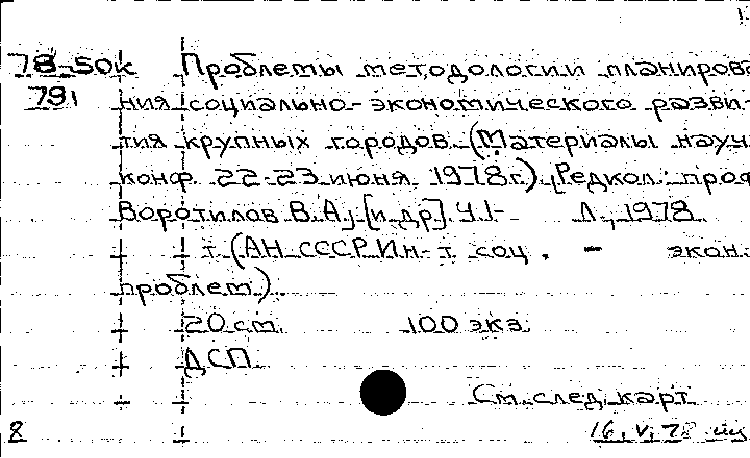 78-50к Проблемы методологии планирова
791 ния социально-экономического разви-
тия крупных городов. (Материалы науч.
конф. 22-23 июня 1978г.) [Редкол.: проф
Воротилов В.А., [и др] Ч 1- Л., 1978
т. (АН СССР. Ин-т соц. - экон.
проблем.)
20 см. 100 экз.
ДСП
См. след. карт
8 16.V.78